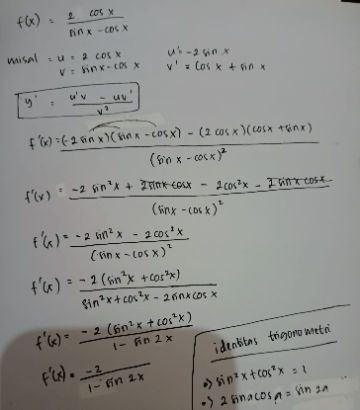 f(x) = 2 cos x / sin x - cos x
misal : u = 2 cos x u' = -2 sin x
v = sin x - cos x v' = cos x + sin x
y' = u'v - uv' / v²
f'(x) = (-2 sin x)(sin x - cos x) - (2 cos x)(cos x + sin x) / (sin x - cos x)²
f'(x) = -2 sin² x + 2 sin x cos x - 2 cos² x - 2 sin x cos x / (sin x - cos x)²
f'(x) = -2 sin² x - 2 cos² x / (sin x - cos x)²
f'(x) = -2 (sin² x + cos² x) / sin² x + cos² x - 2 sin x cos x
f'(x) = -2 (sin² x + cos² x) / 1 - sin 2x
f'(x) = -2 / 1 - sin 2x
identitas trigonometri
=) sin² x + cos² x = 1
=) 2 sin a cos a = sin 2a